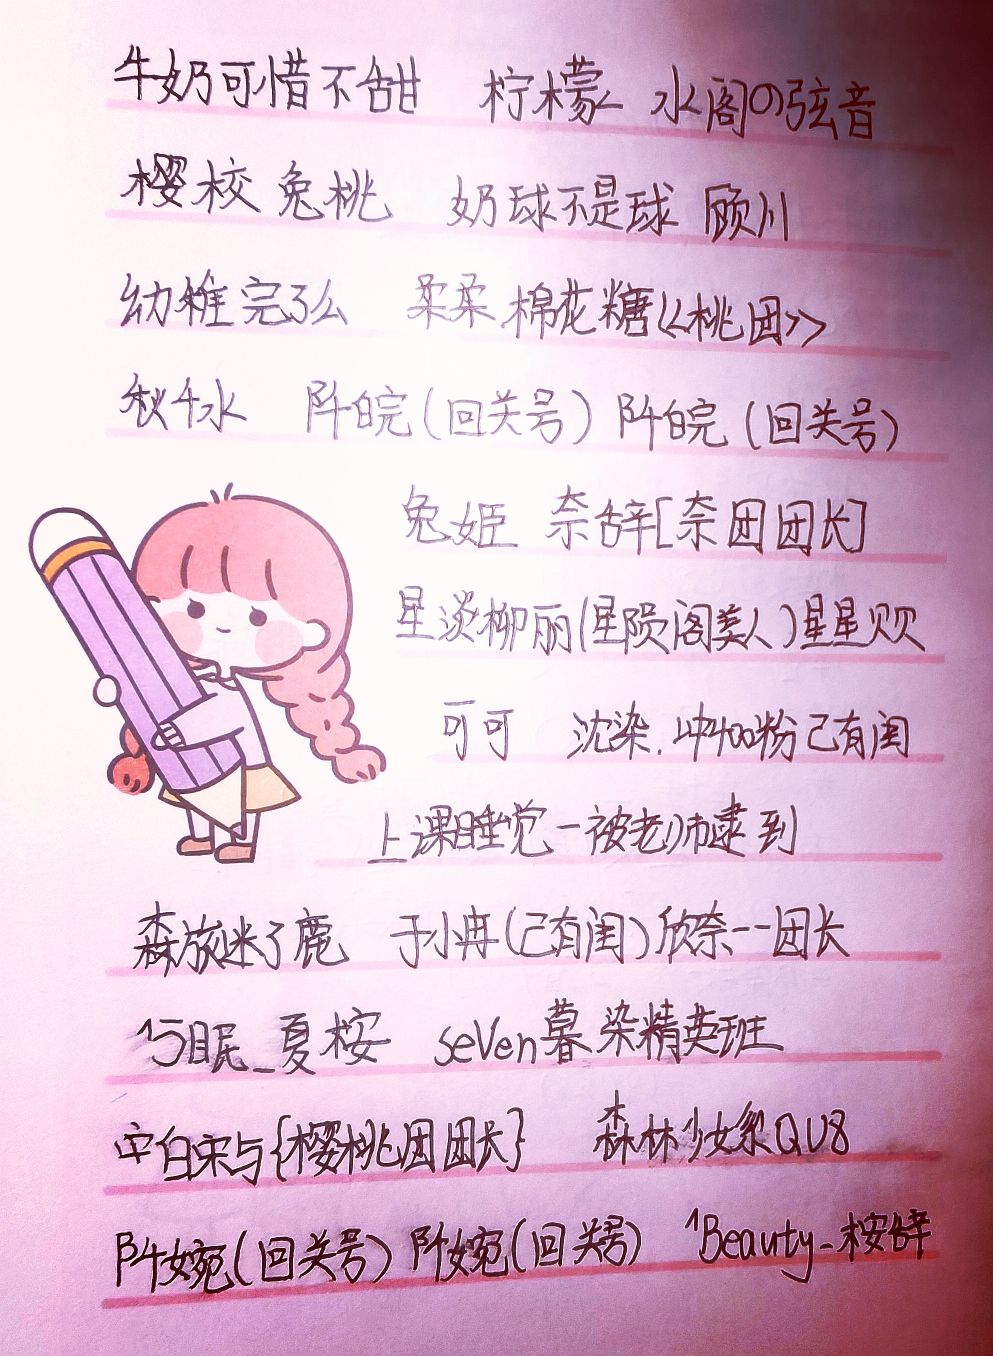 牛奶可惜不甜 柠檬く 水阁の弦音
樱校 兔桃 奶球不是球 顾川
幼稚完了么 柔柔.棉花糖《桃团》
秋千水 阡皖(回关号) 阡皖(回关号)
兔姬 奈辞[奈团团长]
星淡柳丽(星陨阁美人)星星贝贝
可可 沈染.冲400粉己有闺
上课睡觉一被老师逮到
森放迷了鹿 于小冉(己有闺)欣奈--团长
与眠_夏桉 seven暮染精英班
白宋与{樱桃团团长} 森林少女系QU8
阡婉(回关号) 阡婉(回关号) 1Beauty-桉辞